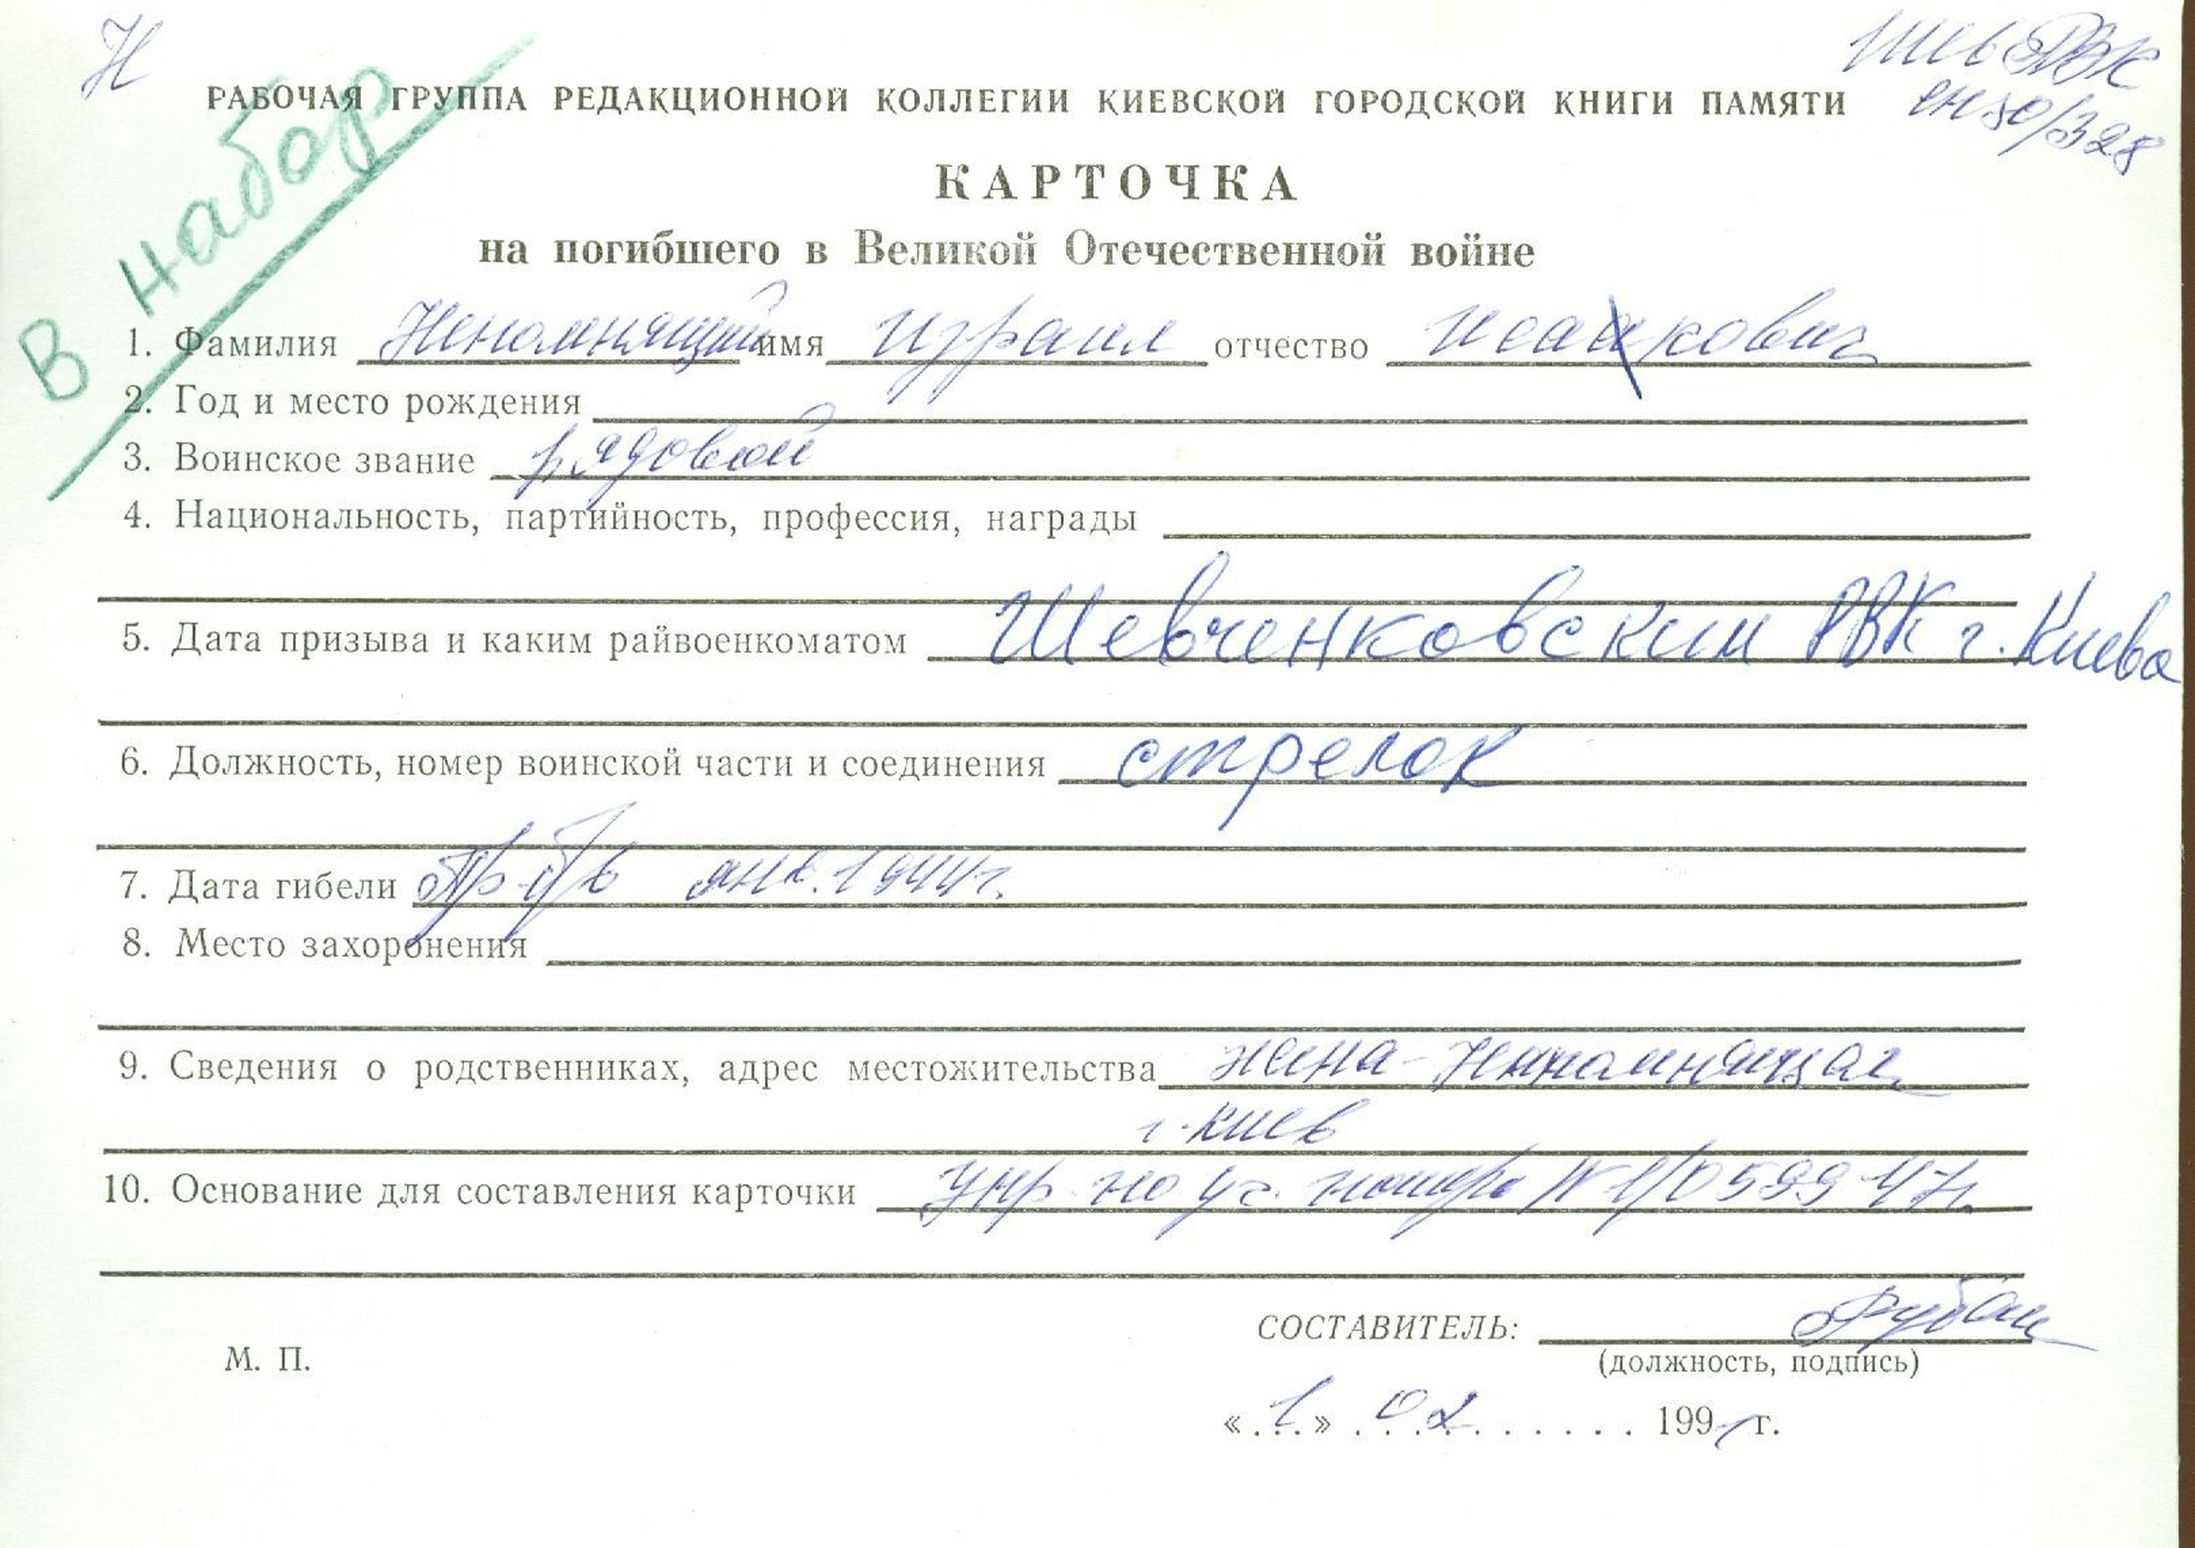 Н
Шев РВК
вн 50/328
В набор
РАБОЧАЯ ГРУППА РЕДАКЦИОННОЙ КОЛЛЕГИИ КИЕВСКОЙ ГОРОДСКОЙ КНИГИ ПАМЯТИ
КАРТОЧКА
на погибшего в Великой Отечественной войне
1. Фамилия Непомнящий имя Израил отчество Исаакович
2. Год и место рождения
3. Воинское звание рядовой
4. Национальность, партийность, профессия, награды
5. Дата призыва и каким райвоенкоматом Шевченковским РВК г. Киева
6. Должность, номер воинской части и соединения стрелок
7. Дата гибели пр. б/в янв. 1944 г.
8. Место захоронения
9. Сведения о родственниках, адрес местожительства жена - Непомнящая
г. Киев
10. Основание для составления карточки Упр. по уч. погибр № 1/0599 47 г.
СОСТАВИТЕЛЬ: Рубан
(должность, подпись)
М. П.
«1» 02 1991 г.